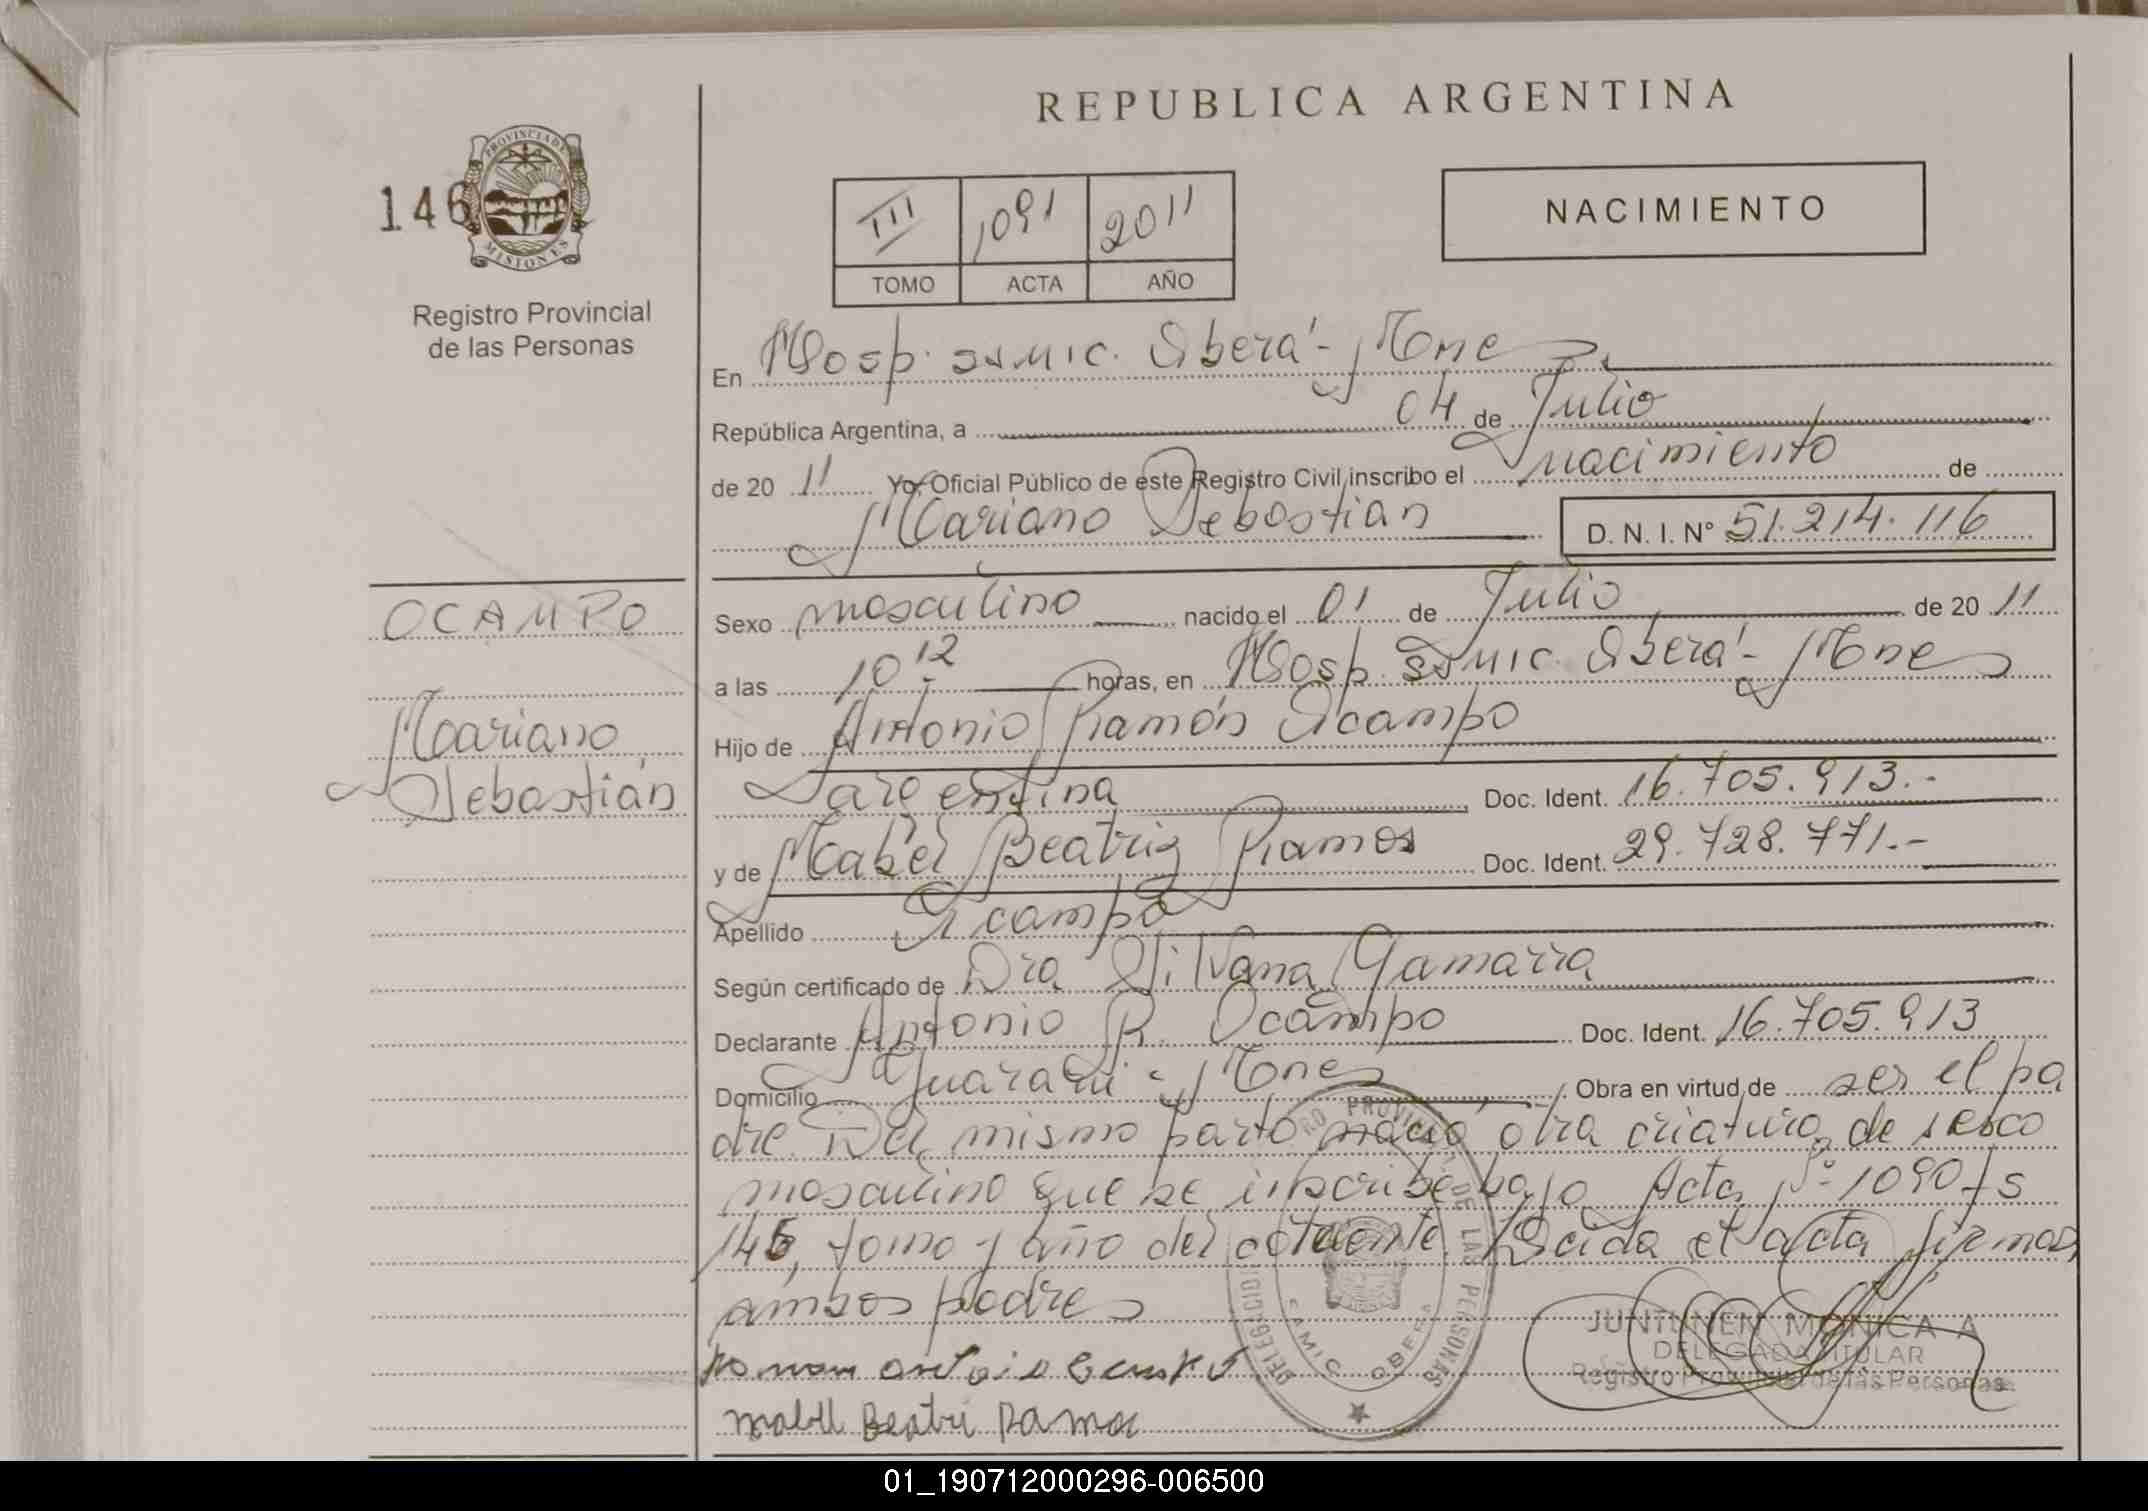 REPUBLICA ARGENTINA
146
PROVINCIA DE MISIONES
Registro Provincial
de las Personas
III 1091 2011
TOMO ACTA AÑO
NACIMIENTO
En Hosp. SAMIC. Oberá - Mnes
República Argentina, a 04 de Julio
de 20 11 Yo, Oficial Público de este Registro Civil inscribo el nacimiento de
Mariano Sebastián D. N. I. N° 51.214.116
OCAMPO
Mariano
Sebastián
Sexo masculino nacido el 01 de Julio de 20 11
a las 10 12 horas, en Hosp. SAMIC. Oberá - Mnes
Hijo de Antonio Ramón Ocampo
argentina Doc. Ident. 16.705.913.-
y de Mabel Beatriz Ramos Doc. Ident. 29.728.771.-
Apellido Ocampo
Según certificado de Dra Silvana Gamarra
Declarante Antonio R. Ocampo Doc. Ident. 16.705.913
Domicilio Guaraní - Mnes Obra en virtud de ser el pa
dre Del mismo parto nació otra criatura de sexo
masculino que se inscribe bajo Acta Nº 1090 fs
145, tomo y año del corriente. Leida el acta firman
ambos padres
mabel Beatri Ramo
REGISTRO PROVINCIAL DE LAS PERSONAS
DELEGACION
SAMIC OBERA
JUNTUNEN MONICA A
DELEGADA TITULAR
Registro Provincial de las Personas
01_190712000296-006500